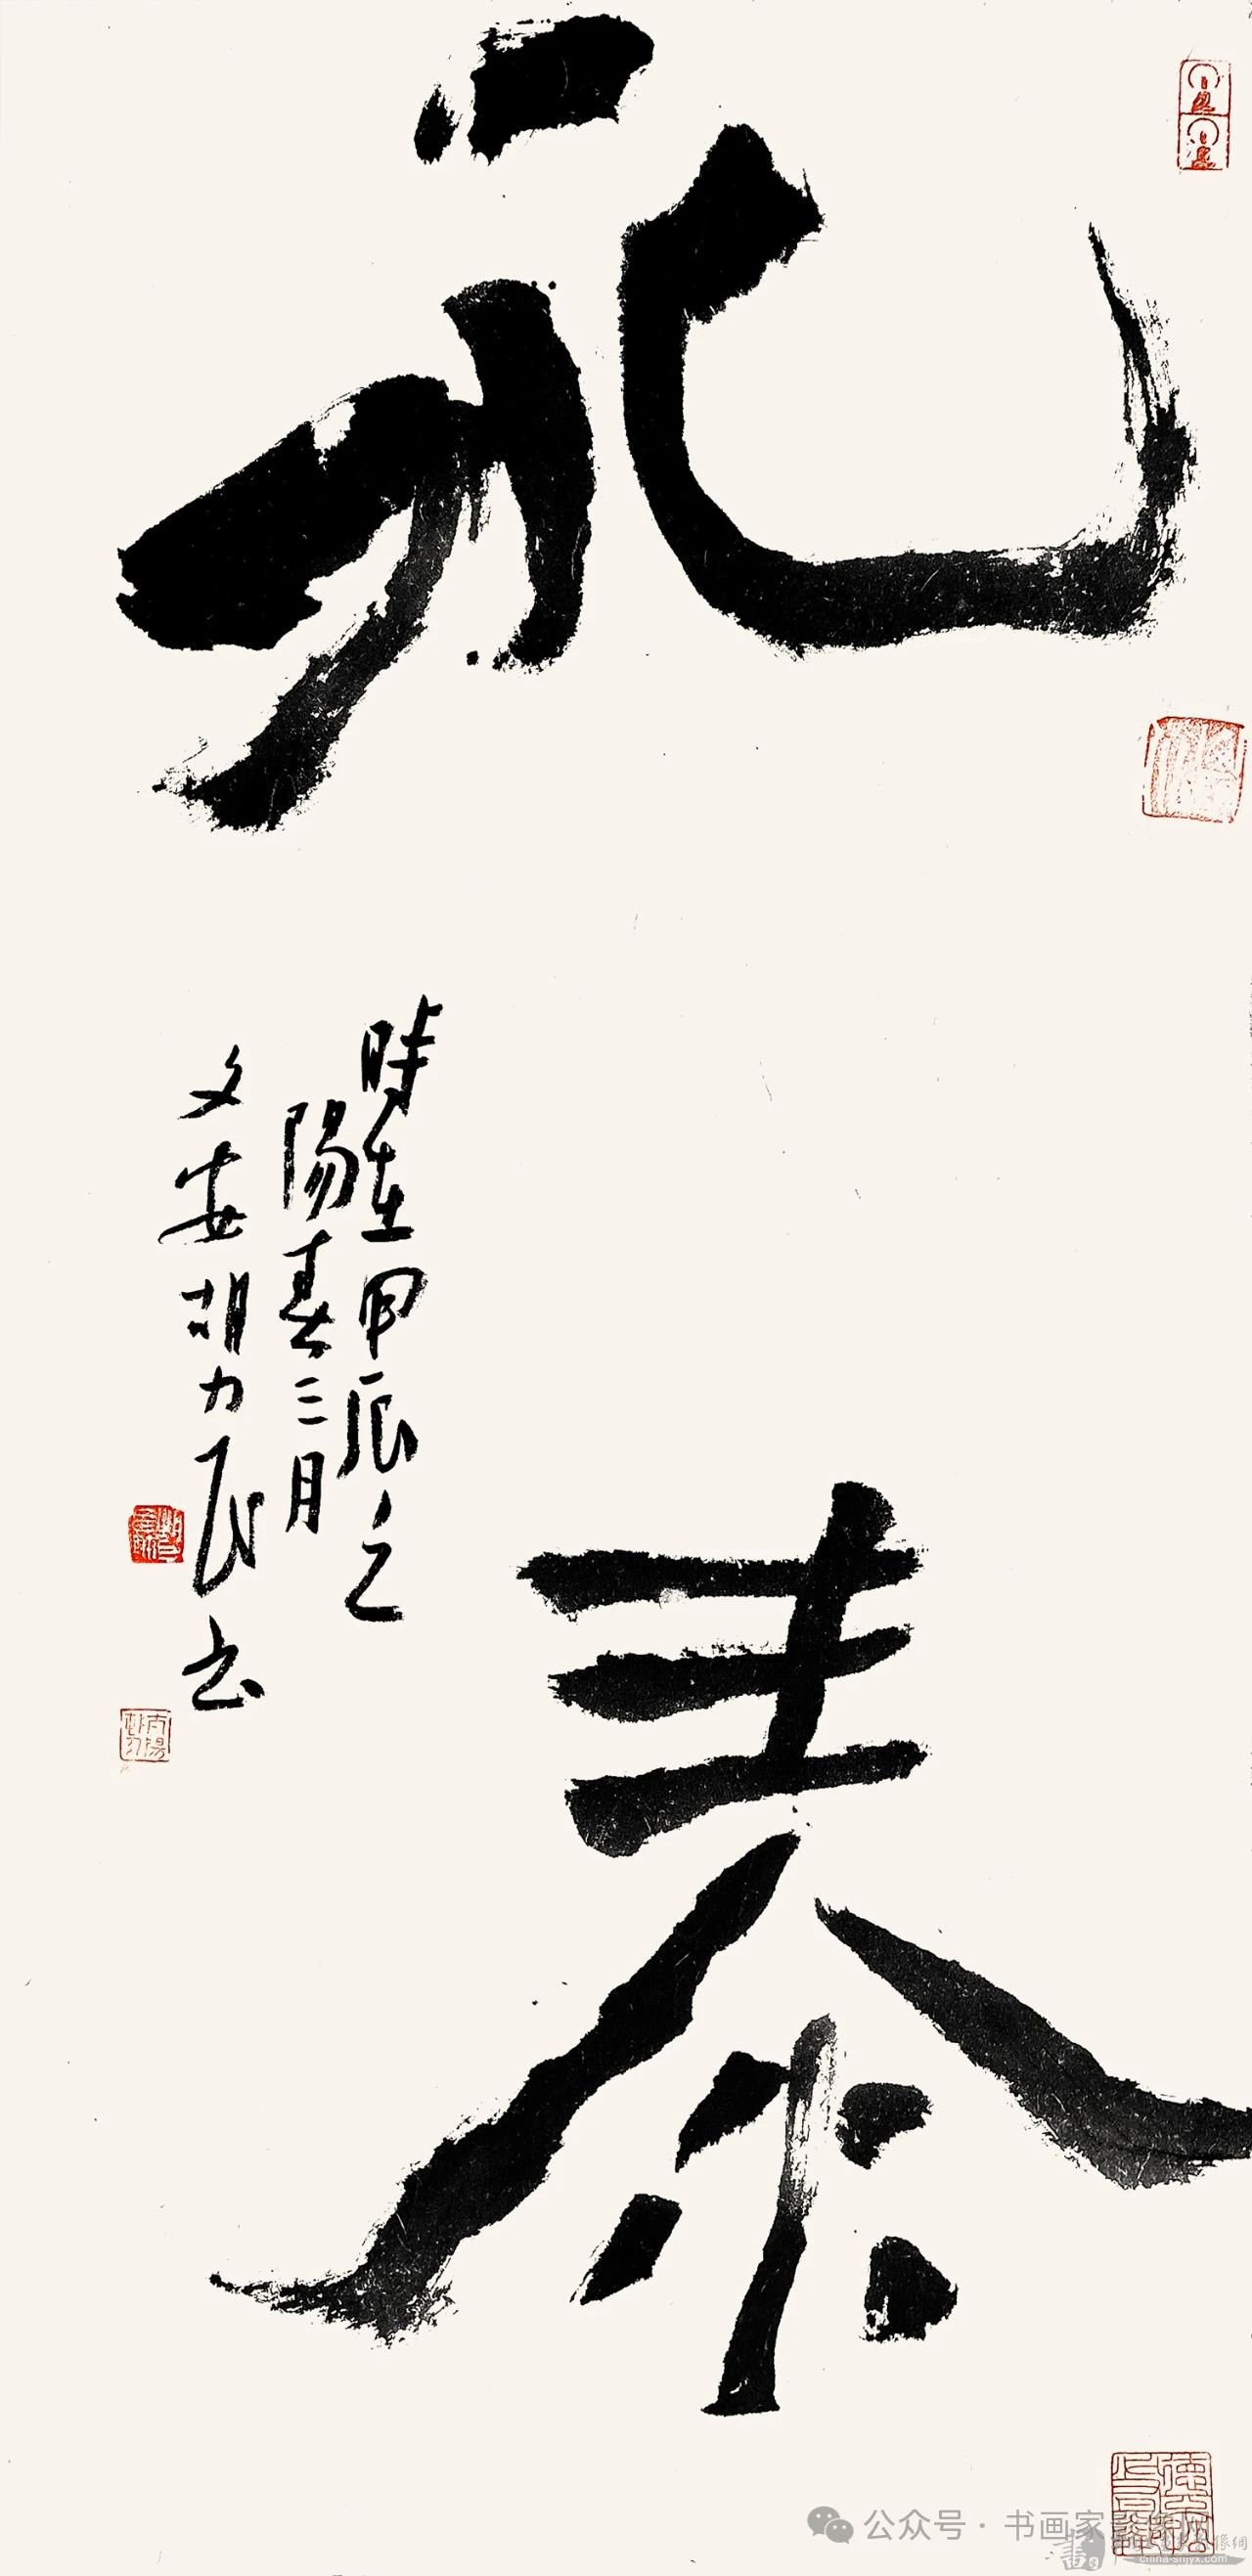 永
泰
時在甲辰之
陽春三月
文安胡力民书
公众号·书画家
china-shjyx.com